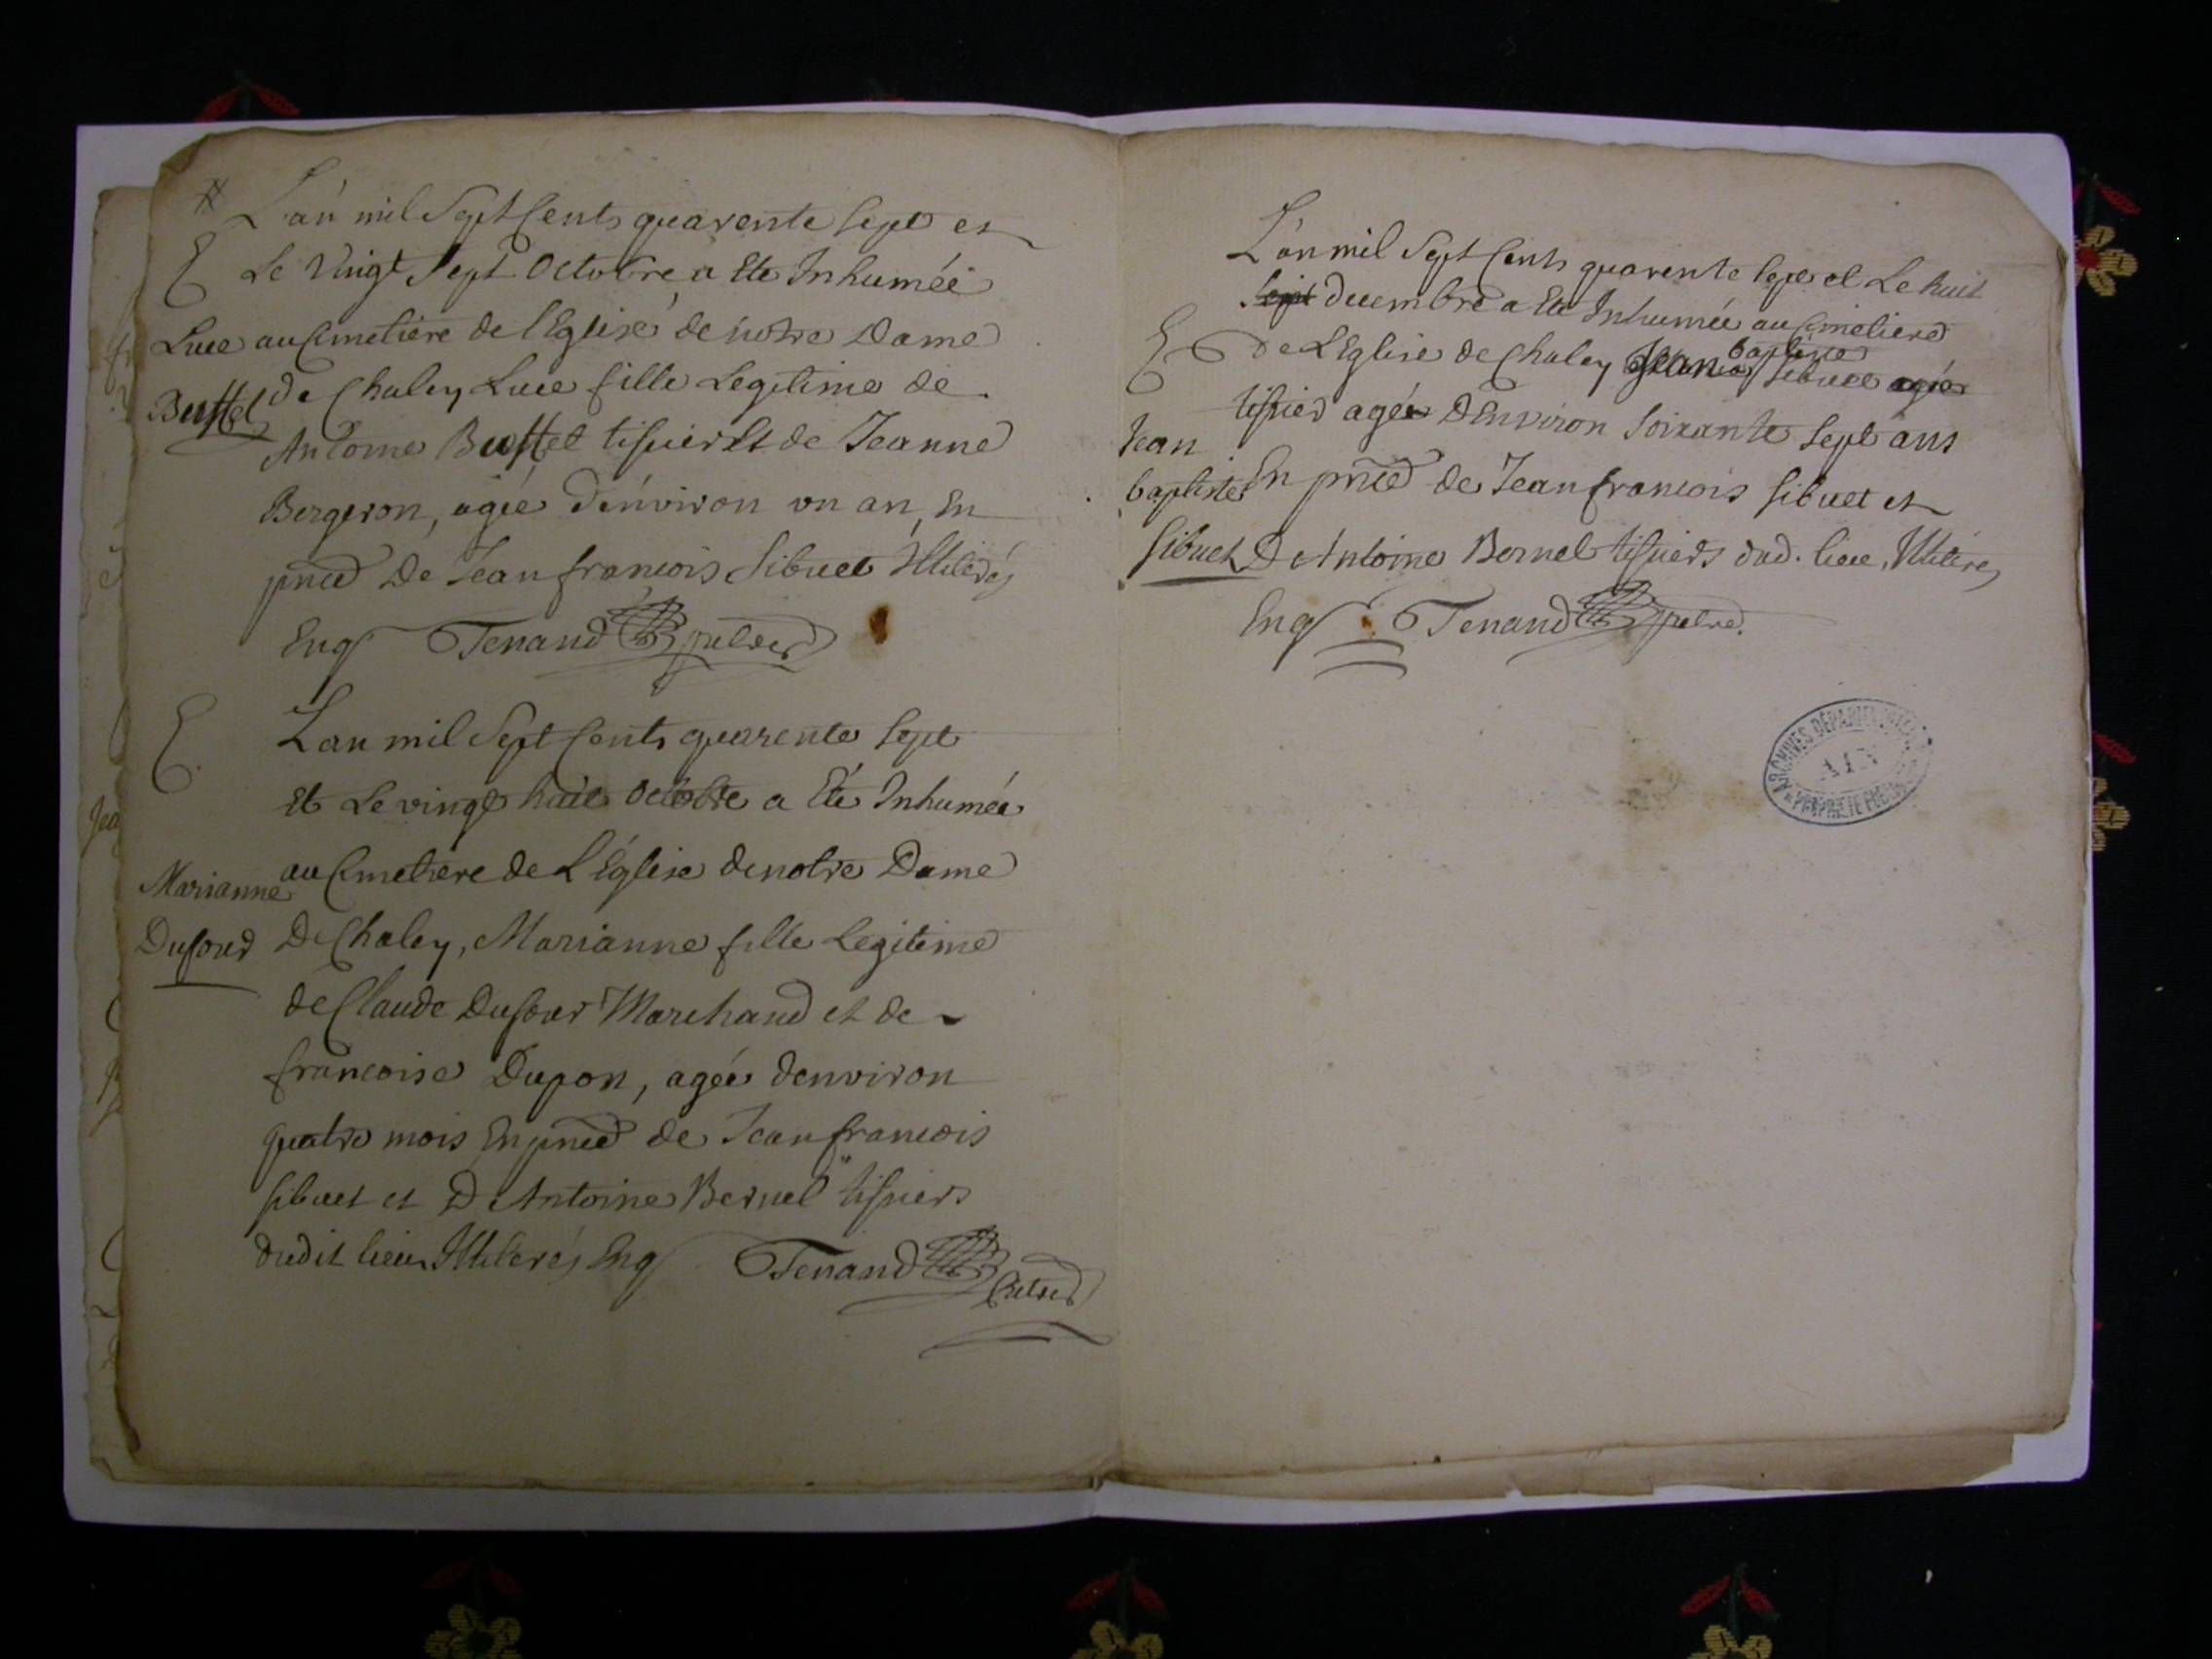 L'an mil Sept Cents quarente sept et
Le Vingt Sept Octobre a Ete Inhumée
Luce au Cimetiere de l'Eglise de notre Dame
Buffet de Chaley Luce fille Legitime de
Antoine Buffet tissier Et de Jeanne
Bergeron, agée d'environ un an, En
pnce De Jean francois Sibuet Illiterés
Enq Tenand
L'an mil Sept Cents quarente Sept
Et Le vingt huit Octobre a Eté Inhumée
au Cimetiere de L'Eglise de notre Dame
Marianne
Dufour De Chaley, Marianne fille Legitime
de Claude Dufour Marchand et de
francoise Dupon, agée denviron
quatre mois En pnce de Jean francois
Sibuet et D Antoine Bernel tissiers
dudit lieu Illiterés Enq Tenand
L'an mil Sept Cents quarente Sept et Le huit
Sept decembre a Eté Inhumée au Cimetiere
baptiste
de L'Eglise de Chaley Jean Sibuet agée
tissier agée D'Environ Soixante Sept ans
Jean
baptiste En pnce de Jean francois Sibuet et
Sibuet D Antoine Bernel tissiers dud. lieu, Illiteres
Enq Tenand
ARCHIVES DÉPARTEMENTALES
AIN
PROPRIÉTÉ PUBLIQUE